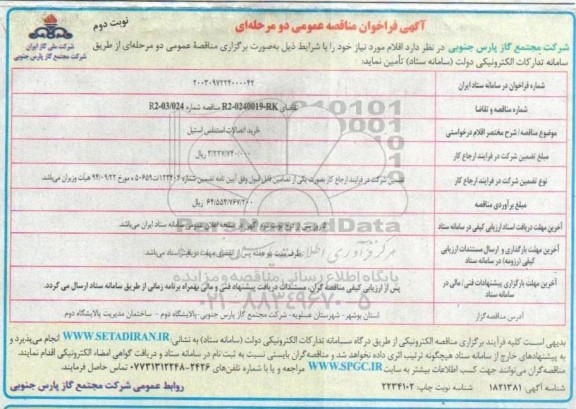 آگهی فراخوان مناقصه عمومی دو مرحله‌ای
نوبت دوم
شرکت ملی گاز ایران
شرکت مجتمع گاز پارس جنوبی
شرکت مجتمع گاز پارس جنوبی در نظر دارد اقلام مورد نیاز خود را با شرایط ذیل به‌صورت برگزاری مناقصهٔ عمومی دو مرحله‌ای از طریق
سامانه تدارکات الکترونیکی دولت (سامانه ستاد) تأمین نماید:
شماره فراخوان در سامانه ستاد ایران
۲۰۰۳۰۹۷۲۲۴۰۰۰۰۴۲
شماره مناقصه و تقاضا
تقاضای R2-0240019-RK مناقصه شماره R2-03/024
موضوع مناقصه/ شرح مختصر اقلام درخواستی
خرید اتصالات استنلس استیل
مبلغ تضمین شرکت در فرایند ارجاع کار
۳/۲۲۷/۷۴۰/۰۰۰ ریال
نوع تضمین شرکت در فرایند ارجاع کار
تضمین شرکت در فرایند ارجاع کار بصورت یکی از تضامین قابل قبول وفق آیین نامه تضمین شماره ۱۲۳۴۰۲/ت۵۰۶۵۹ ه مورخ ۹۴/۰۹/۲۲ هیأت وزیران می‌باشد.
مبلغ برآوردی مناقصه
۶۴/۵۵۴/۷۶۷/۲۰۰ ریال
آخرین مهلت دریافت اسناد ارزیابی کیفی در سامانه ستاد
روز پس از درج نوبت دوم آگهی در صفحه اعلان عمومی سامانه ستاد ایران می‌باشد.
آخرین مهلت بارگذاری و ارسال مستندات ارزیابی
کیفی (رزومه) در سامانه ستاد
ظرف مدت دو هفته پس از انقضای مهلت دریافت اسناد می‌باشد.
آخرین مهلت بارگزاری پیشنهادات فنی/ مالی در
سامانه ستاد
پس از ارزیابی کیفی مناقصه گران، مستندات دریافت پیشنهاد فنی و مالی بهمراه برنامه زمانی از طریق سامانه ستاد ارسال می گردد.
آدرس مناقصه‌گزار
استان بوشهر- شهرستان عسلویه- شرکت مجتمع گاز پارس جنوبی-پالایشگاه دوم - ساختمان مدیریت پالایشگاه دوم
پایگاه اطلاع رسانی مناقصه و مزایده
۰۲۱-۸۸۳۴۹۶۷۰-۵
بدیهی است کلیه فرآیند برگزاری مناقصه الکترونیکی از طریق درگاه سامانه تدارکات الکترونیکی دولت (سامانه ستاد) به نشانی: WWW.SETADIRAN.IR انجام می‌پذیرد و
به پیشنهادهای خارج از سامانه ستاد هیچگونه ترتیب اثری داده نخواهد شد و مناقصه گران بایستی نسبت به ثبت نام در سامانه ستاد و دریافت گواهی امضاء الکترونیکی اقدام نمایند.
مناقصه‌گران می‌توانند جهت کسب اطلاعات بیشتر به سایت WWW.SPGC.IR مراجعه و یا با شماره تلفن‌های ۲۴۲۶-۰۷۷۳۱۳۱۲۲۴۸ تماس حاصل فرمایند.
شناسه آگهی: ۱۸۲۱۳۸۱ شناسه نوبت چاپ: ۲۲۳۴۱۰۲
روابط عمومی شرکت مجتمع گاز پارس جنوبی